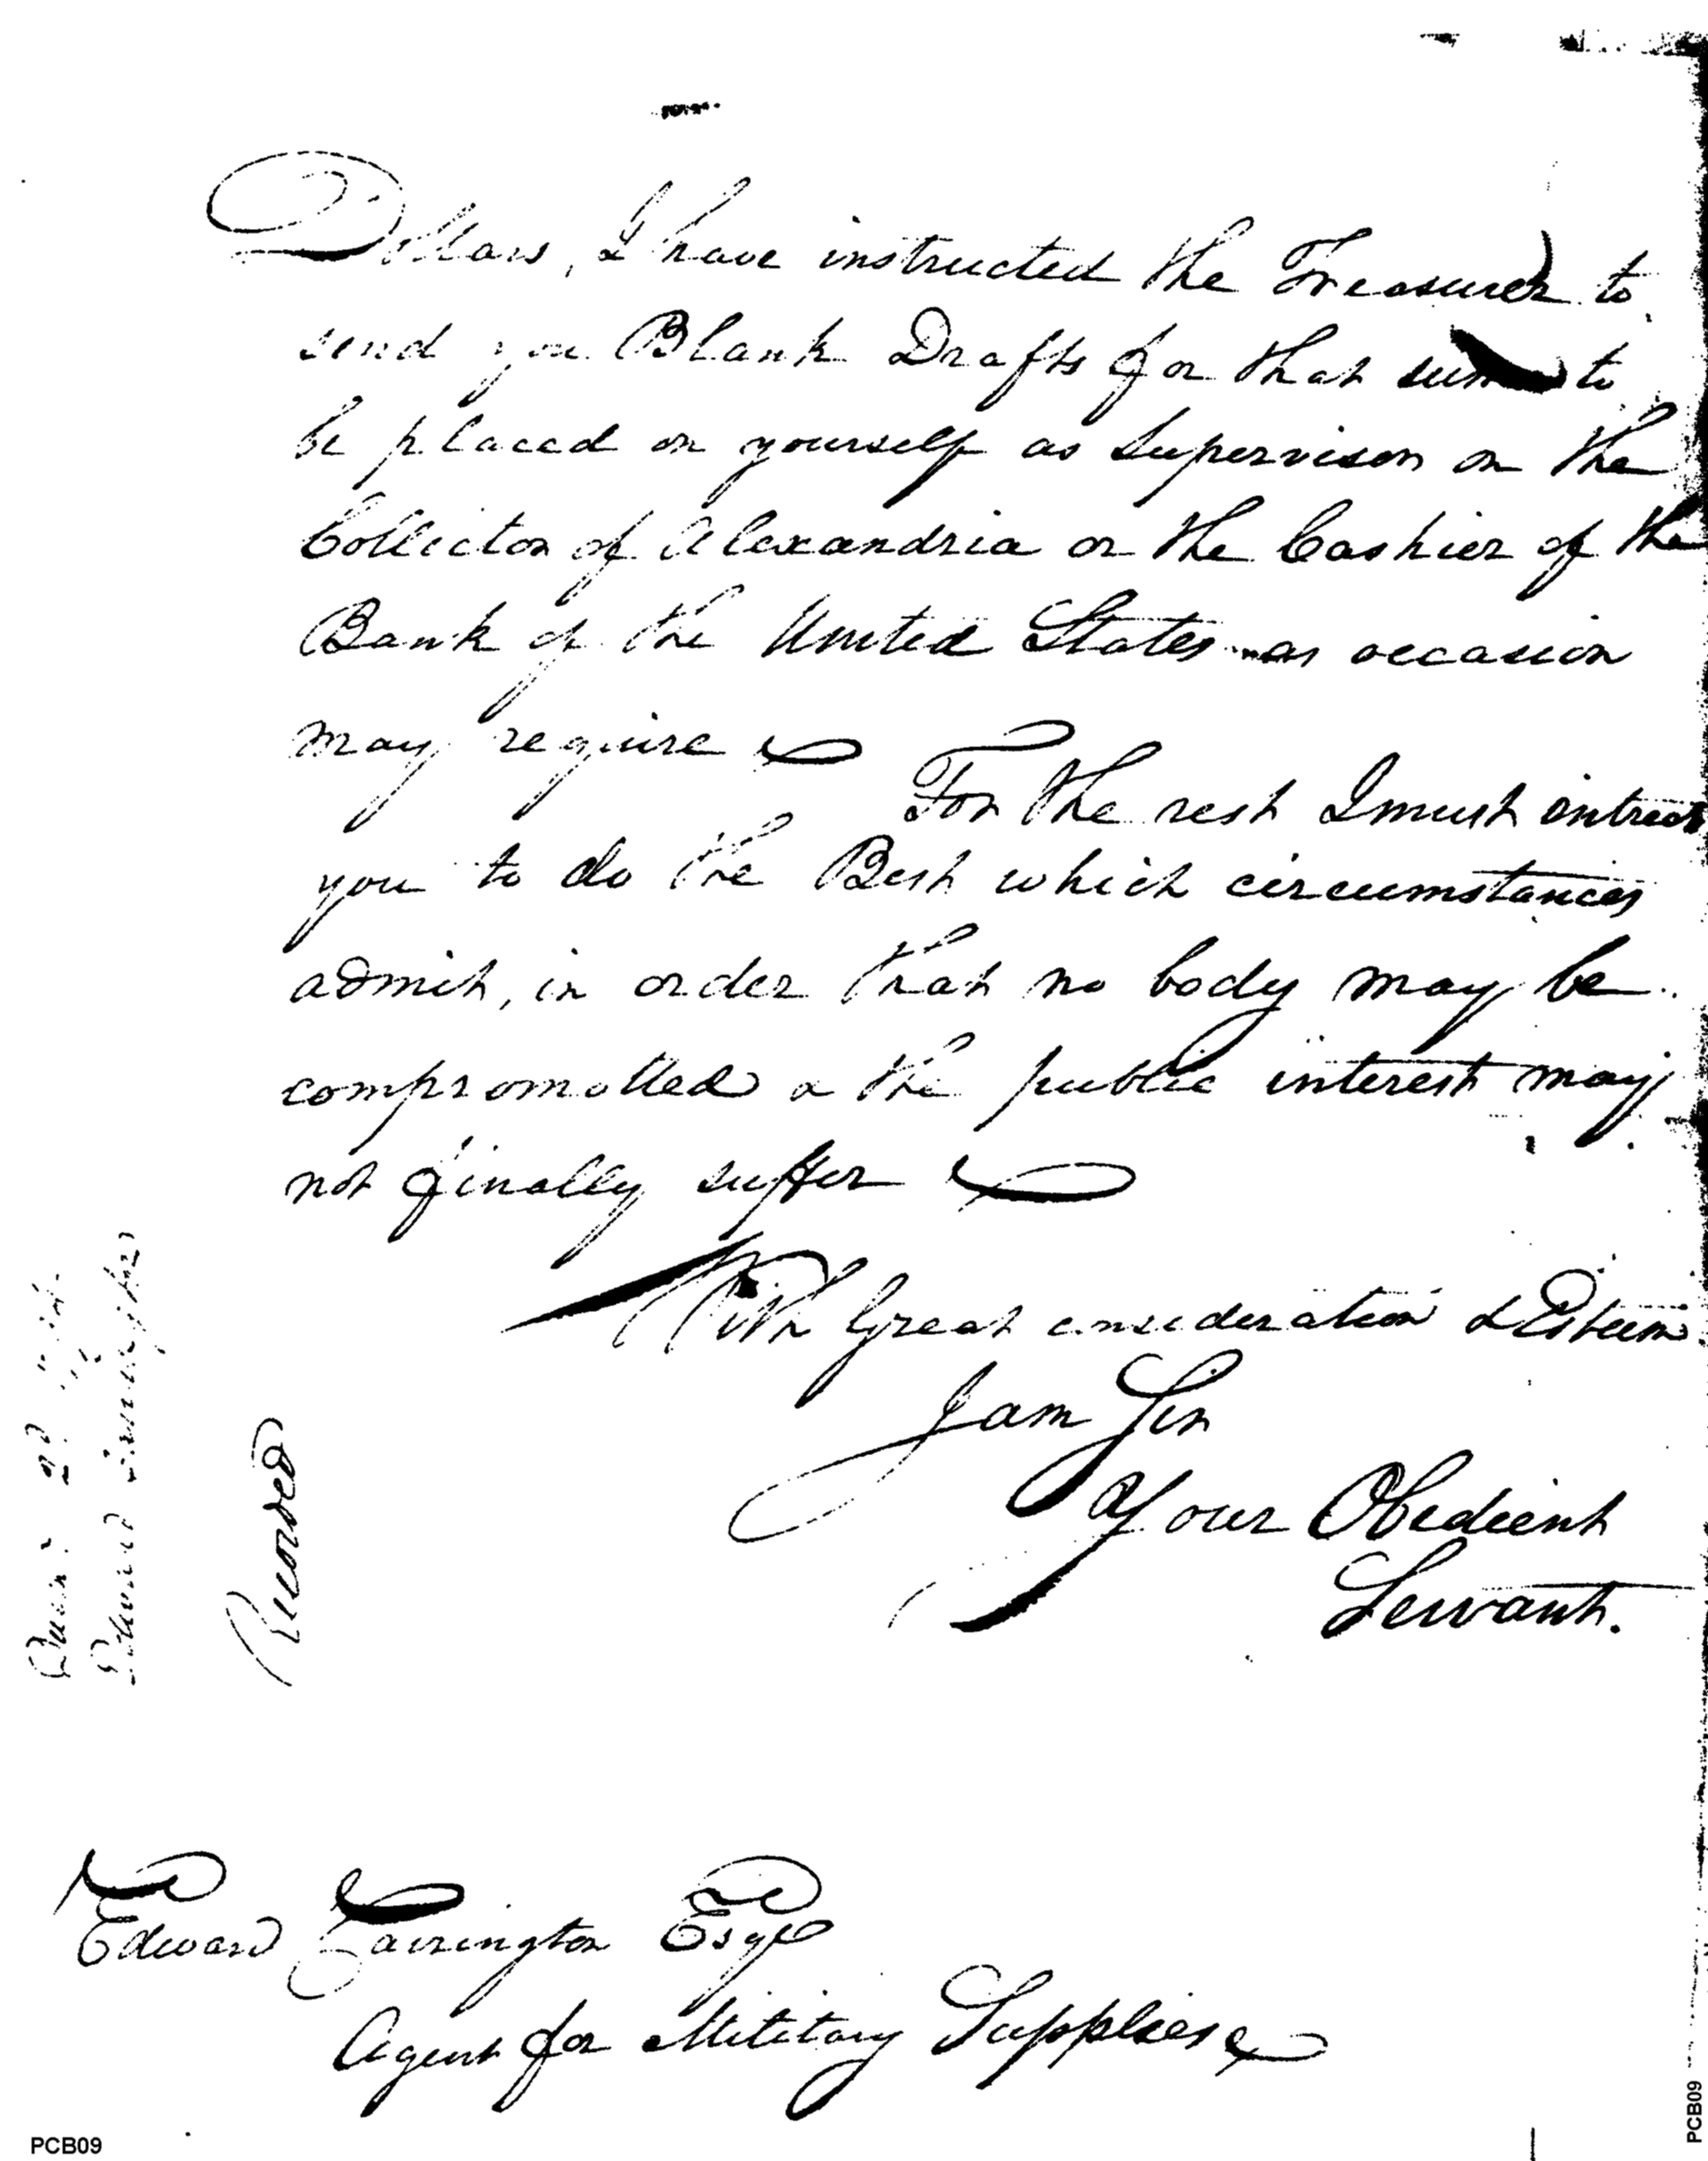 Dollars, I have instructed the Treasurer to
send you Blank Drafts for that sum to
be placed on yourself as Supervison on the
Collector of Alexandria or the Cashier of the
Bank of the United States as occasion
may require
For the rest I must intreat
you to do the Best which circumstances
admit, in order that no body may be
compromotted & the public interest may
not finally suffer
With Great consideration & Esteem
I am Sir
Your Obedient
Servant.
Edward Carrington Esqr
Agent for Military Supplies
Recorded
PCB09
PCB09